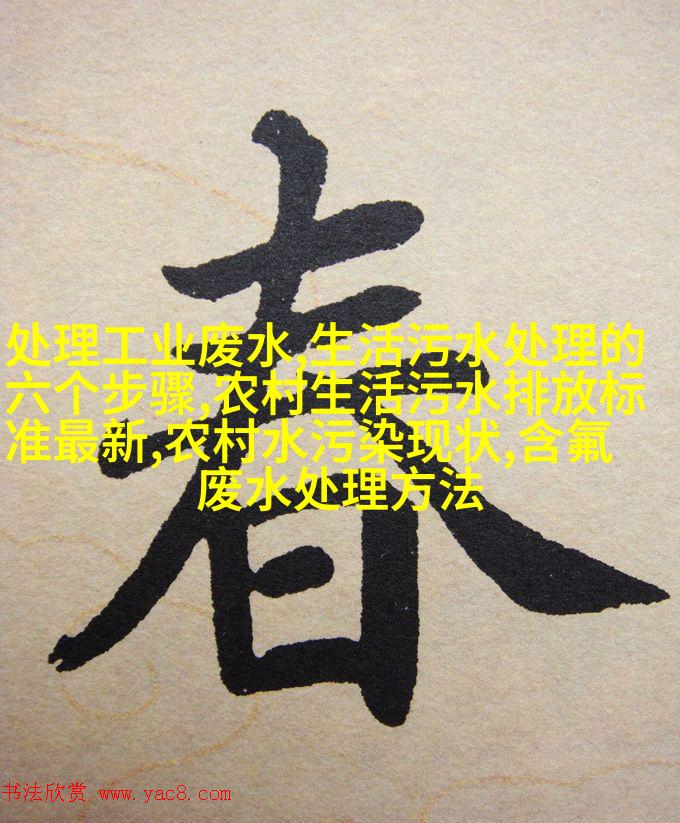 春
处理工业废水,生活污水处理的
六个步骤,农村生活污水排放标
准最新,农村水污染现状,含氟
废水处理方法
书法欣赏 www.yac8.com